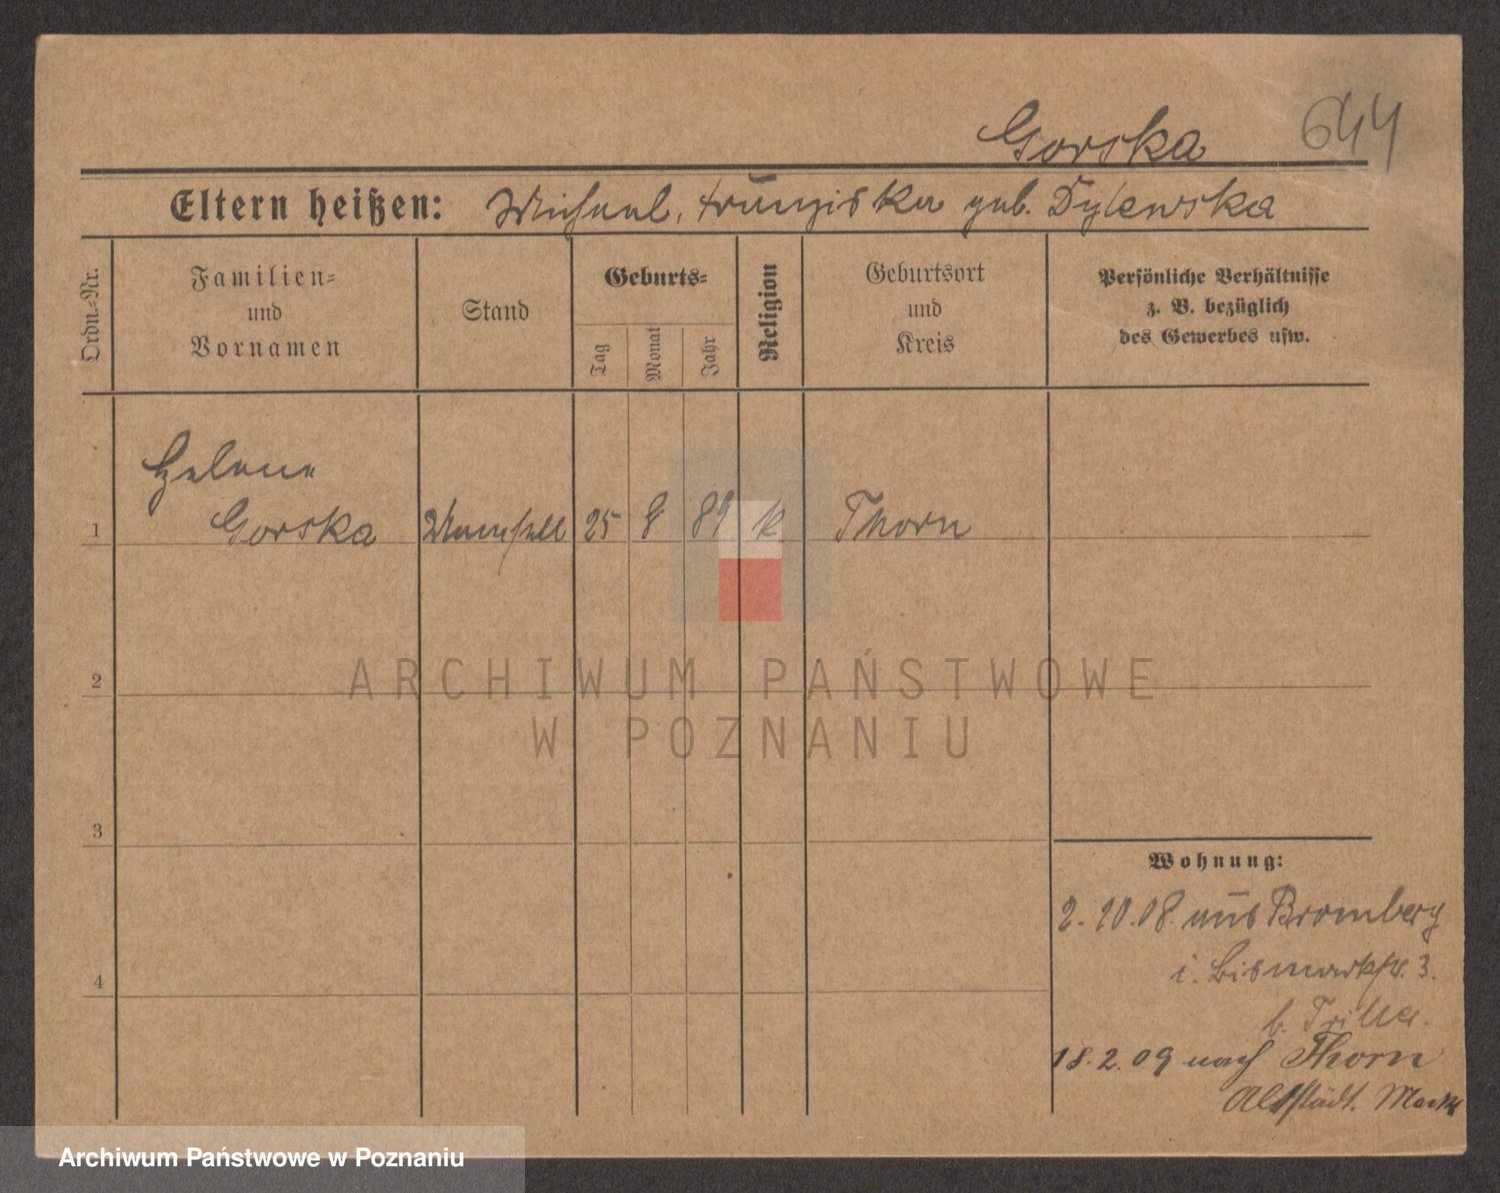 Gorska 644
Eltern heißen: Michael, Franziska geb. Dylewska
Ordn.-Nr.
Familien-
und
Vornamen
Stand
Geburts-
Tag
Monat
Jahr
Religion
Geburtsort
und
Kreis
Persönliche Verhältnisse
z. B. bezüglich
des Gewerbes usw.
Helene
1 Gorska Mamsell 25 8 89 k Thorn
2
3
4
Wohnung:
2. 10. 08. aus Bromberg
i. Bismarckstr. 3.
b.
18. 2. 09 nach Thorn
Altstädt. Markt
ARCHIWUM PAŃSTWOWE
W POZNANIU
Archiwum Państwowe w Poznaniu